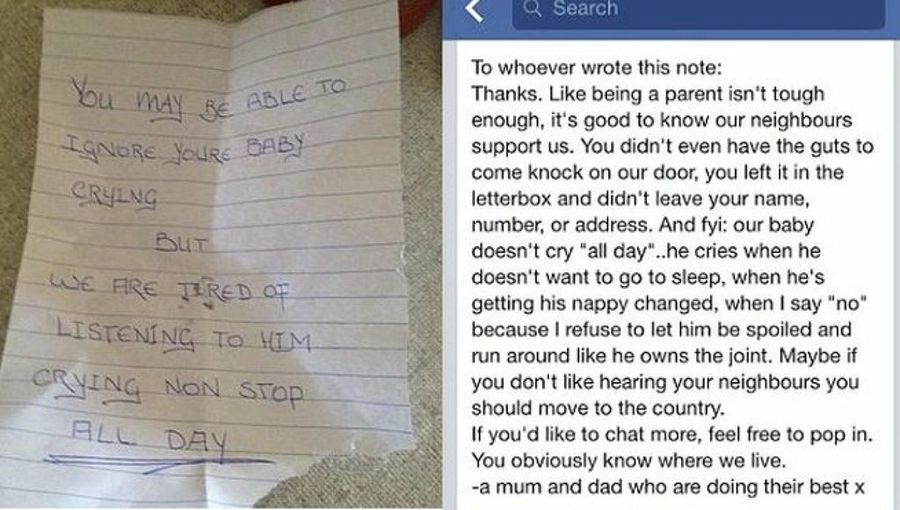 YOU MAY BE ABLE TO
IGNORE YOURE BABY
CRYING
BUT
WE ARE TIRED OF
LISTENING TO HIM
CRYING NON STOP
ALL DAY
Search
To whoever wrote this note:
Thanks. Like being a parent isn't tough
enough, it's good to know our neighbours
support us. You didn't even have the guts to
come knock on our door, you left it in the
letterbox and didn't leave your name,
number, or address. And fyi: our baby
doesn't cry "all day"..he cries when he
doesn't want to go to sleep, when he's
getting his nappy changed, when I say "no"
because I refuse to let him be spoiled and
run around like he owns the joint. Maybe if
you don't like hearing your neighbours you
should move to the country.
If you'd like to chat more, feel free to pop in.
You obviously know where we live.
-a mum and dad who are doing their best x